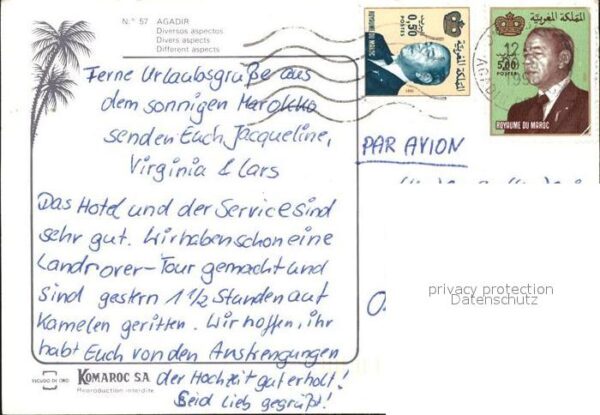 N.° 57 AGADIR
Diversos aspectos
Divers aspects
Different aspects
Ferne Urlaubsgrüße aus
dem sonnigen Marokko
senden Euch Jacqueline,
Virginia & Lars
Das Hotel und der Service sind
sehr gut. Wir haben schon eine
Landrover-Tour gemacht und
sind gestern 1 1/2 Stunden auf
Kamelen geritten. Wir hoffen, ihr
habt Euch von den Anstrengungen
der Hochzeit gut erholt!
Seid lieb gegrüßt!
ESCUDO DE ORO
KOMAROC SA
Reproduction interdite
ROYAUME DU MAROC
0,50
POSTES
المملكة المغربية
المملكة المغربية
12
5,00
POSTES
ROYAUME DU MAROC
PAR AVION
privacy protection
Datenschutz